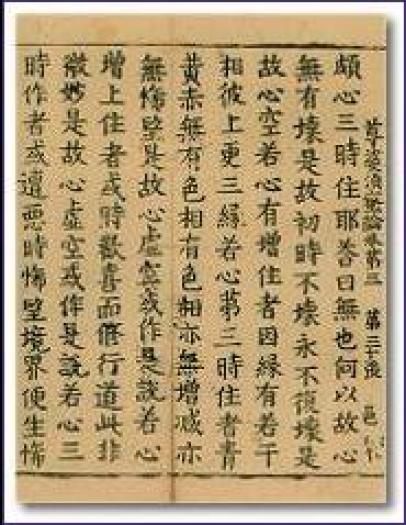 論卷第三 第
頗心三時住耶荅曰無也何以故心
無有壞是故初時不壞永不復壞是
故心空若心有增住者因緣有若干
相彼上更三緣若心苐三時住者青
黃赤無有色相有色相亦無增減亦
無悔堅是故心虛空或作是說若心
增上住者或時歡喜而脩行道此非
微妙是故心虛空或作是說若心三
時作者或遭惡時悔堅境界便生悔